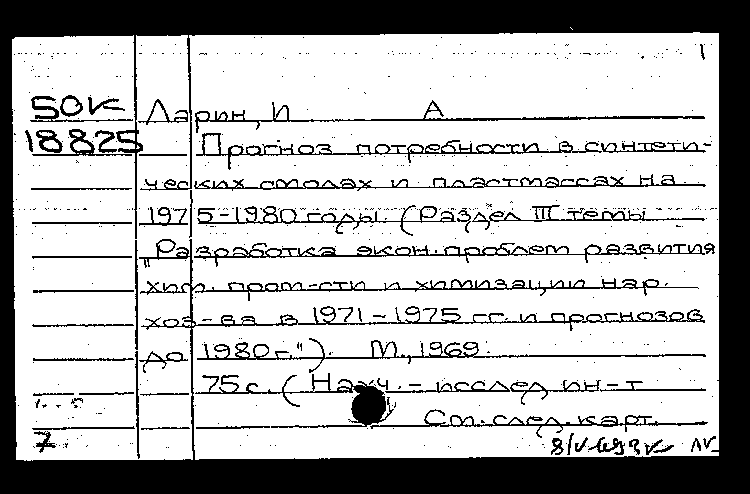 1
50к Ларин, И А
18825 Прогноз потребности в синтети-
ческих смолах и пластмассах на
1975-1980 годы. (Раздел III темы
"Разработка экон. проблем развития
хим. пром-сти и химизации нар.
хоз-ва в 1971-1975 гг. и прогнозов
до 1980 г."). М., 1969.
75 с. (Науч.-исслед ин-т
См. след. карт.
7.